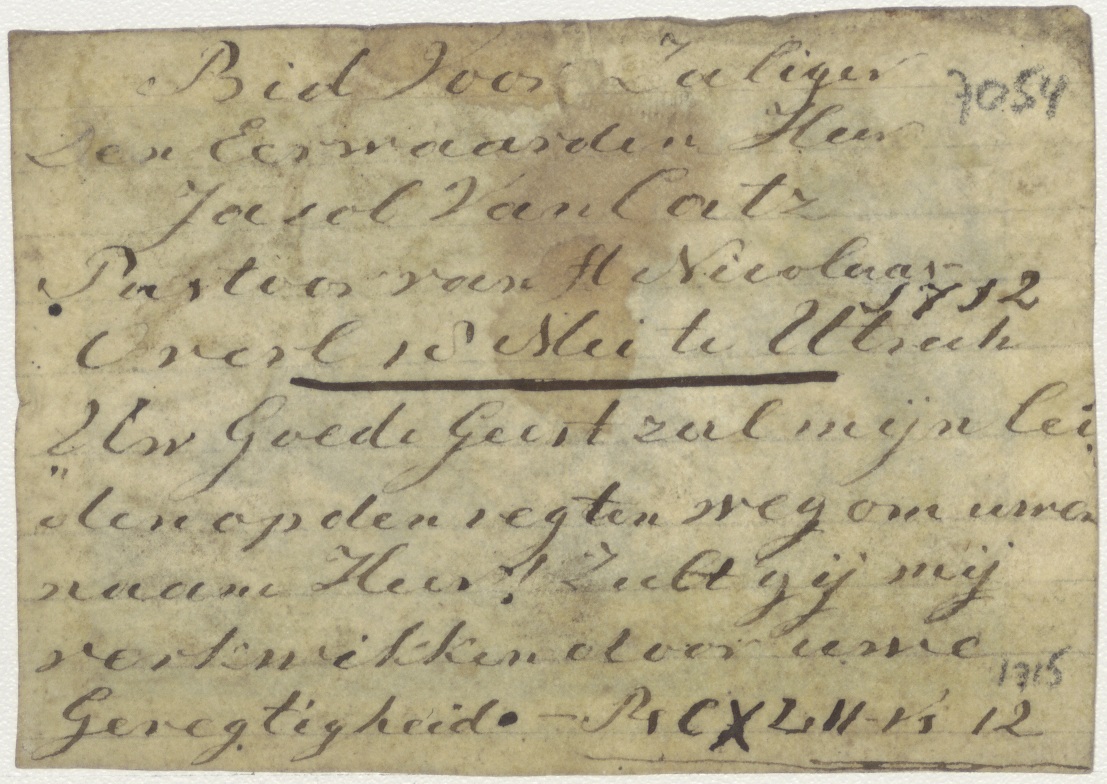 Bid Voor Zaliger
7054
Den Eerwaarden Heer
Jacob Van Catz
Pastoor van St Nicolaas
1712
Overl 18 Mei te Utrech
Uw Goede Geest zal mijn lei
"den op den regten weg om uwen
naam Heer! Zult gij mij
verkwikken door uwe
1715
Geregtigheid. - Ps CXLII-Vs 12